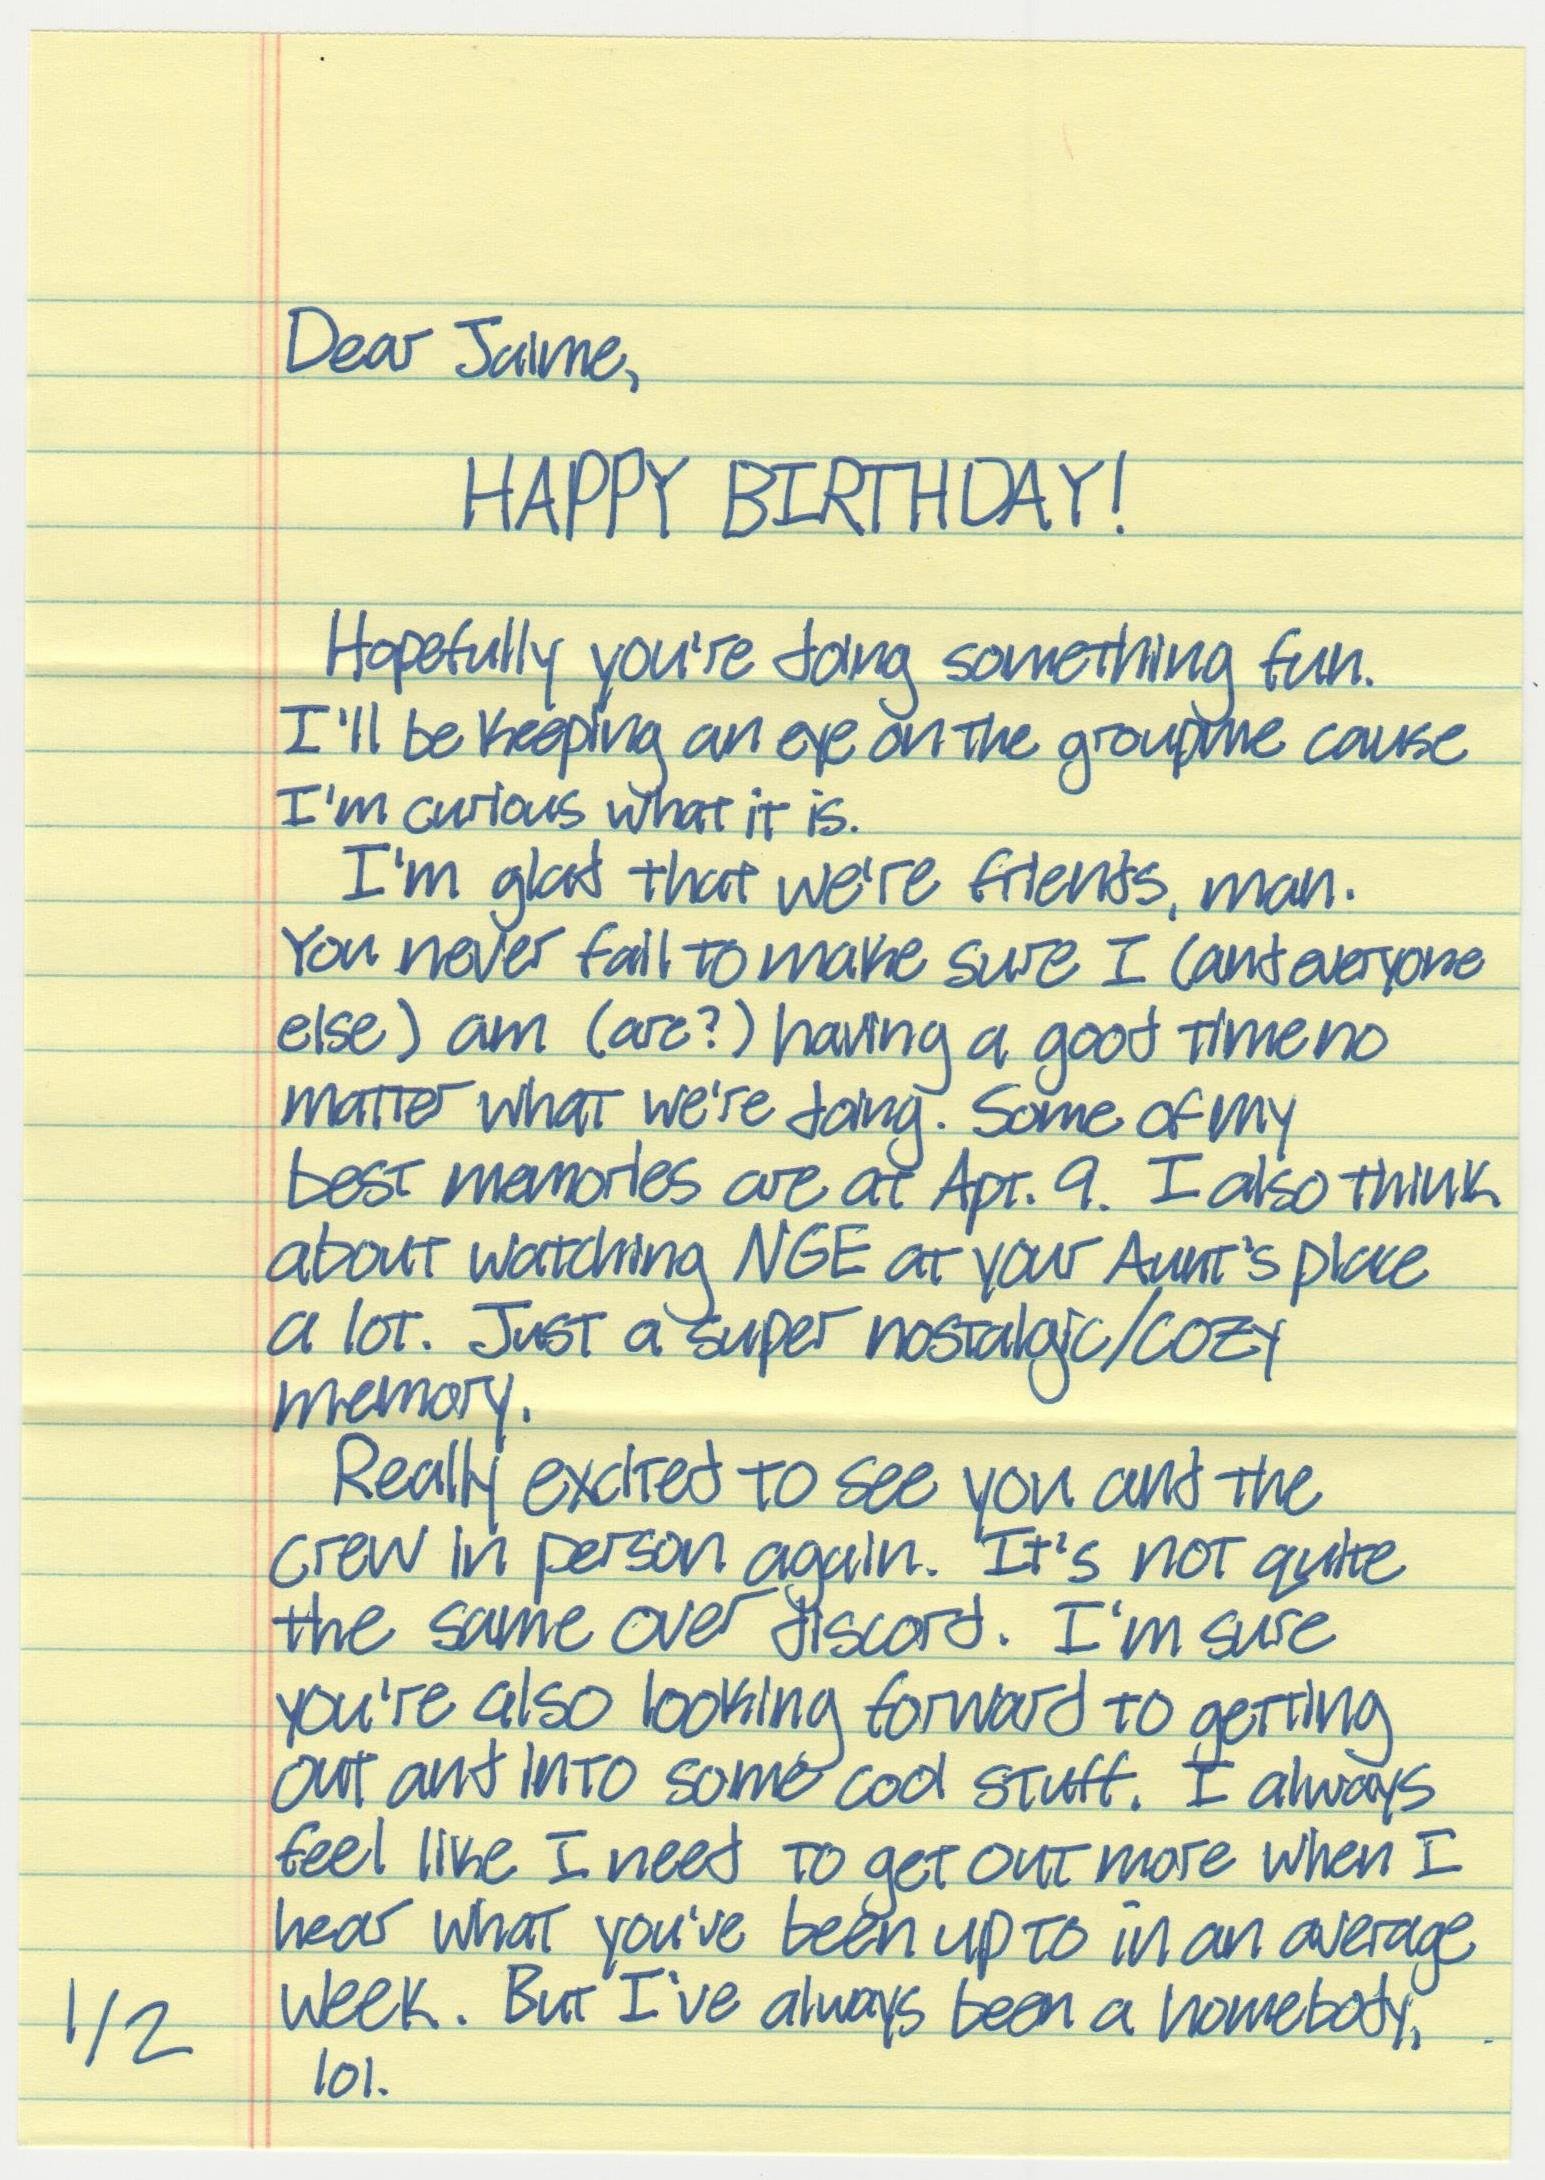 Dear Jaime,
HAPPY BIRTHDAY!
Hopefully you're doing something fun.
I'll be keeping an eye on the groupme cause
I'm curious what it is.
I'm glad that we're friends, man.
You never fail to make sure I (and everyone
else) am (are?) having a good time no
matter what we're doing. Some of my
best memories are at Apt. 9. I also think
about watching NGE at your Aunt's place
a lot. Just a super nostalgic/cozy
memory.
Really excited to see you and the
crew in person again. It's not quite
the same over discord. I'm sure
you're also looking forward to getting
out and into some cool stuff. I always
feel like I need to get out more when I
hear what you've been up to in an average
week. But I've always been a homebody,
lol.
1/2